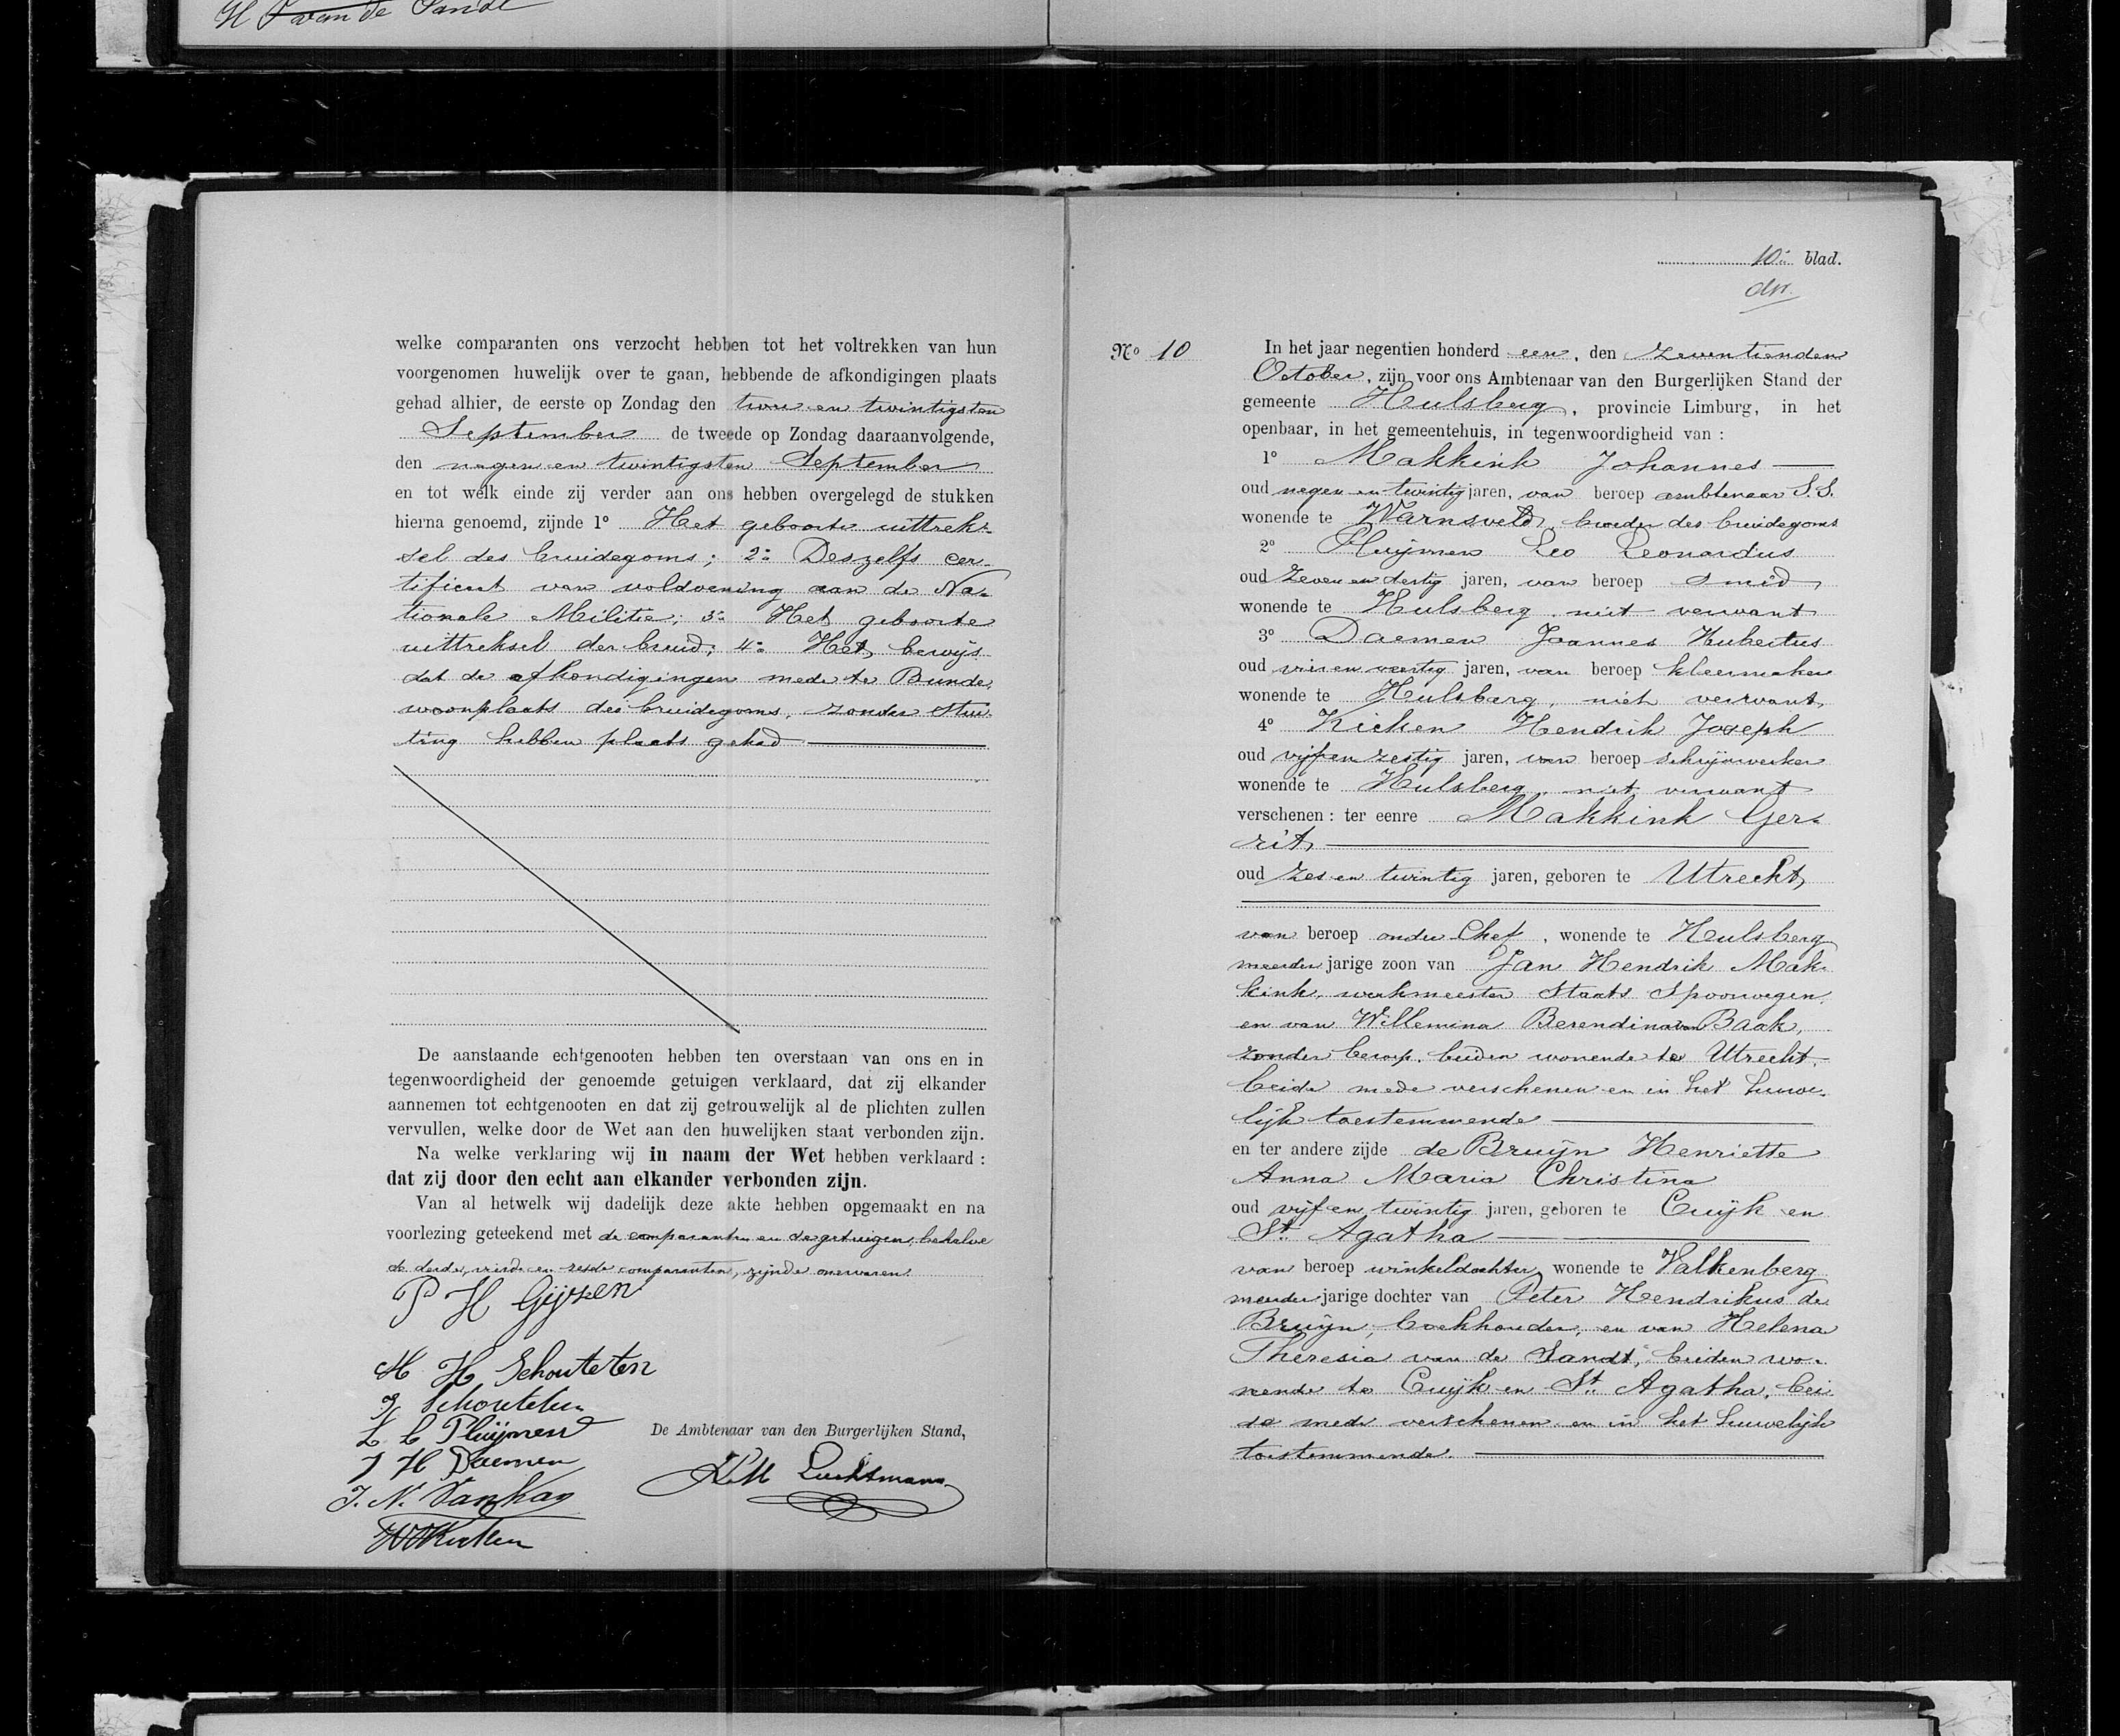 H P van de Sandt
welke comparanten ons verzocht hebben tot het voltrekken van hun
voorgenomen huwelijk over te gaan, hebbende de afkondigingen plaats
gehad alhier, de eerste op Zondag den twee en twintigsten
September de tweede op Zondag daaraanvolgende,
den negen en twintigsten September
en tot welk einde zij verder aan ons hebben overgelegd de stukken
hierna genoemd, zijnde 1° Het geboorte uittrek-
sel des bruidegoms; 2° Deszelfs cer-
tificat van voldoening aan de Na-
tionale Militie; 3° Het geboorte
uittreksel der bruid; 4° Het bewijs
dat de afkondigingen mede te Bunde,
woonplaats des bruidegoms, zonder stui-
ting hebben plaats gehad
De aanstaande echtgenooten hebben ten overstaan van ons en in
tegenwoordigheid der genoemde getuigen verklaard, dat zij elkander
aannemen tot echtgenooten en dat zij getrouwelijk al de plichten zullen
vervullen, welke door de Wet aan den huwelijken staat verbonden zijn.
Na welke verklaring wij in naam der Wet hebben verklaard :
dat zij door den echt aan elkander verbonden zijn.
Van al hetwelk wij dadelijk deze akte hebben opgemaakt en na
voorlezing geteekend met de comparanten en de getuigen, behalve
de derde, vierde en zesde comparanten, zijnde onervaren.
P H Gijzen
M H Schouteten
Schouteten
L L Pluijmen
J H Daemen
J. N. Van
H J Kicken
De Ambtenaar van den Burgerlijken Stand,
Luchtmans
10e blad.
No 10
In het jaar negentien honderd een, den zeventienden
October, zijn voor ons Ambtenaar van den Burgerlijken Stand der
gemeente Hulsberg, provincie Limburg, in het
openbaar, in het gemeentehuis, in tegenwoordigheid van :
1° Makkink Johannes
oud negen en twintig jaren, van beroep ambtenaar S.S.
wonende te Warnsveld, broeder des bruidegoms
2° Pluijmen Leo Leonardus
oud zeven en dertig jaren, van beroep smid,
wonende te Hulsberg, niet verwant
3° Daemen Joannes Hubertus
oud vier en veertig jaren, van beroep kleermaker
wonende te Hulsberg, niet verwant,
4° Kicken Hendrik Joseph
oud vijf en zestig jaren, van beroep schrijnwerker
wonende te Hulsberg, niet verwant
verschenen : ter eenre Makkink Ger-
rit,
oud zes en twintig jaren, geboren te Utrecht,
van beroep onder Chef, wonende te Hulsberg
meerderjarige zoon van Jan Hendrik Mak-
kink, werkmeester Staats Spoorwegen,
en van Willemina Berendina van Baak,
zonder beroep, beiden wonende te Utrecht,
beide mede verschenen en in het huwe-
lijk toestemmende
en ter andere zijde de Bruijn Henriette
Anna Maria Christina
oud vijf en twintig jaren, geboren te Cuijk en
St. Agatha
van beroep winkeldochter, wonende te Valkenberg
meerderjarige dochter van Peter Hendrikus de
Bruijn, boekhouder, en van Helena
Theresia van de Sandt, beiden wo-
nende te Cuijk en St. Agatha, bei-
de mede verschenen en in het huwelijk
toestemmende.